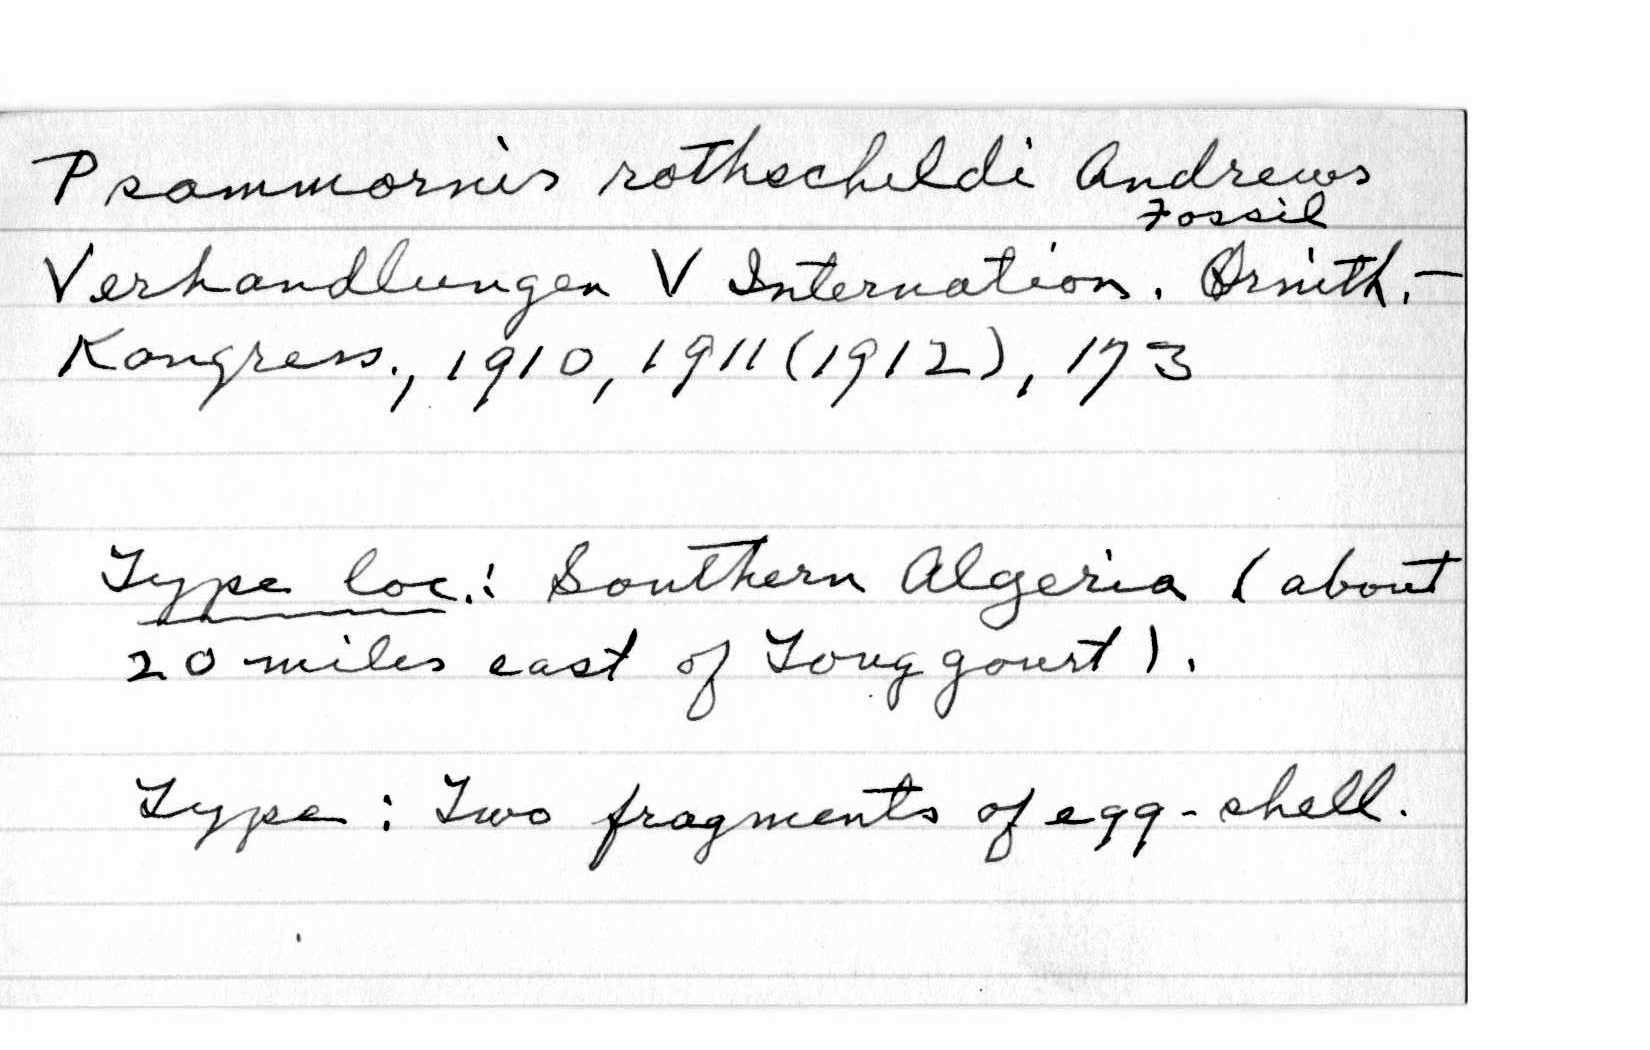 Psammornis rothschildi Andrews
Fossil
Verhandlungen V Internation. Ornith.-
Kongress., 1910, 1911 (1912), 173
Type loc.: Southern Algeria (about
20 miles east of Touggourt).
Type: Two fragments of egg-shell.